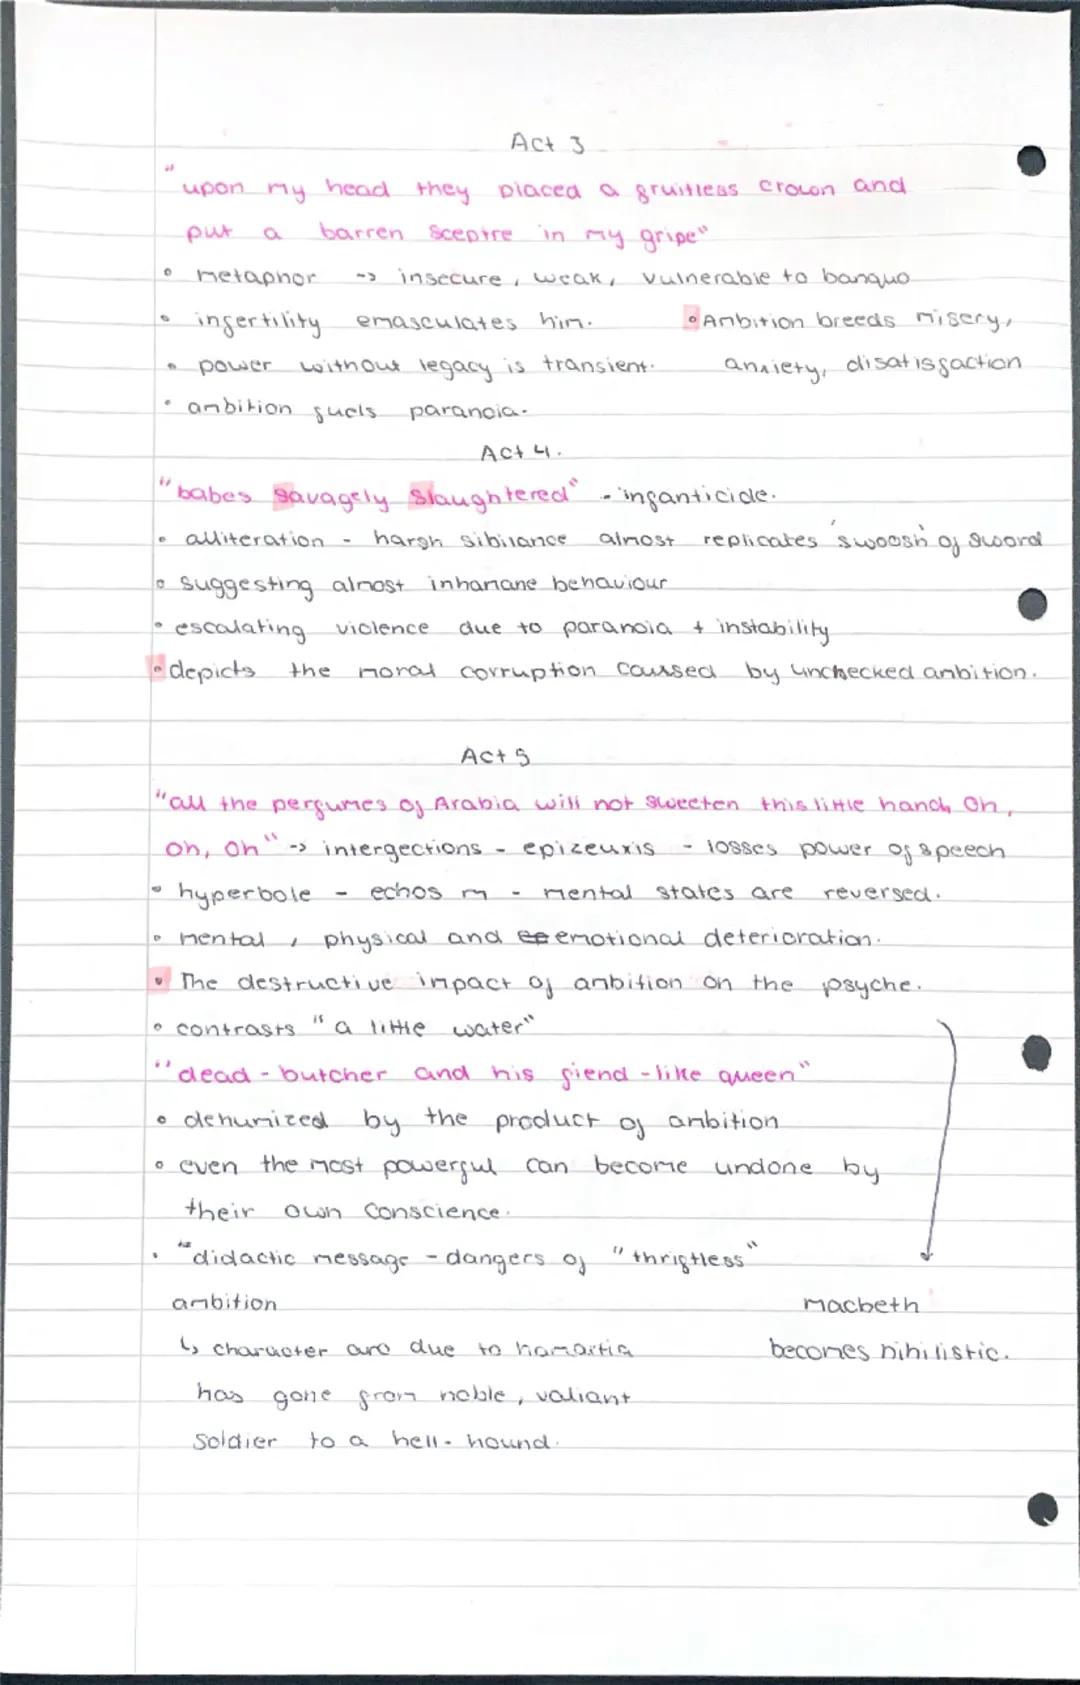 Act 3
"upon my head they placed a fruitless crown and
put a barren sceptre in my gripe"
• metaphor -> insecure, weak, vulnerable to banquo
• infertility emasculates him. • Ambition breeds misery,
• power without legacy is transient. anxiety, disatisfaction
• ambition fuels paranoia.
Act 4.
"babes savagely slaughtered" - infanticide.
• alliteration - harsh sibilance almost replicates 'swoosh' of sword
• suggesting almost inhumane behaviour
• escalating violence due to paranoia + instability
• depicts the moral corruption caused by unchecked ambition.
Act 5
"all the perfumes of Arabia will not sweeten this little hand, Oh,
oh, oh" -> intergections - epizeuxis - losses power of speech
• hyperbole - echos m - mental states are reversed.
• mental, physical and emotional deterioration.
• The destructive impact of ambition on the psyche.
• contrasts "a little water"
"dead-butcher and his fiend-like queen"
• dehumized by the product of ambition
• even the most powerful can become undone by
their own conscience.
• "didactic message - dangers of "thriftless"
ambition macbeth
↳ character arc due to hamartia becomes nihilistic.
has gone from noble, valiant
soldier to a hell-hound.